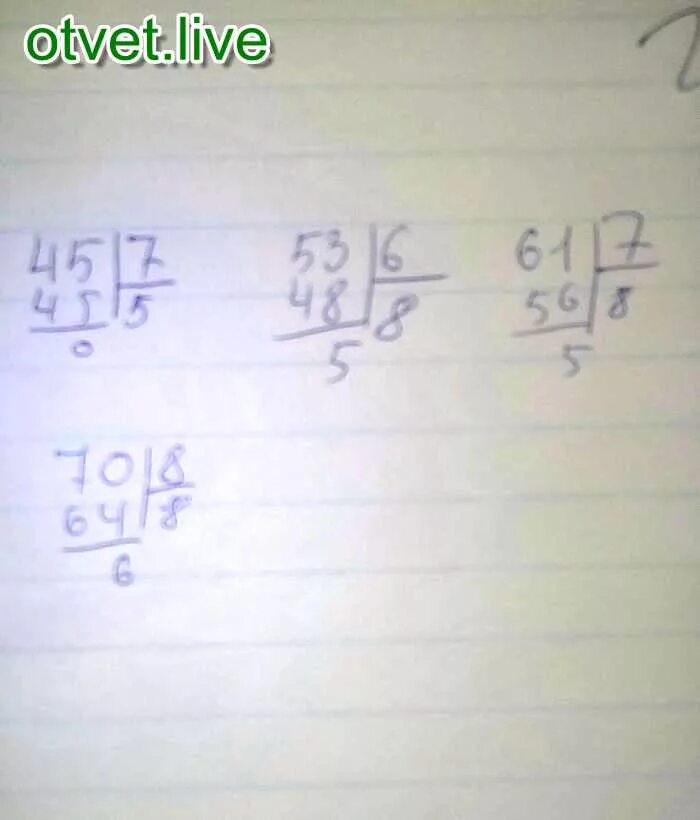 otvet.live
2
45 7 53 6 61 7
45 5 48 8 56 8
0 5 5
70 8
64 8
6